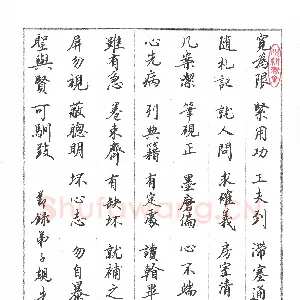 寬為限 緊用功 工夫到 滯塞通
隨札記 就人問 求確義 房室清
几案潔 筆硯正 墨磨偏 心不端
心先病 列典籍 有定處 讀看畢
雖有急 卷束齊 有缺坏 就補之
屏勿視 蔽聰明 坏心志 勿自暴
聖與賢 可馴致 弟子規